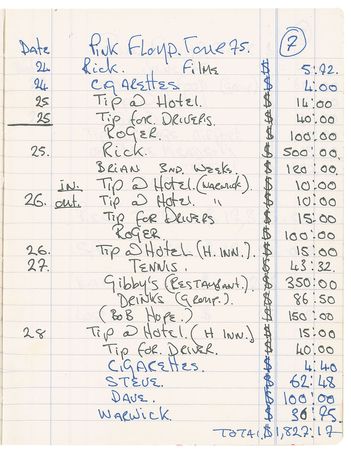 Pink Floyd. Tour 75. 7
Date
24 Rick. Films $ 5:72.
24 CIGARETTES $ 4:00
25 Tip @ Hotel. $ 14:00
25 Tip for DRIVERS. $ 40:00
ROGER. $ 100:00
25. Rick. $ 500:00.
BRIAN 2ND. WEEKS. $ 120:00.
in: Tip @ Hotel. (WARWICK). $ 10:00
26. out. Tip @ Hotel. " $ 10:00
Tip for DRIVERS $ 15:00
ROGER $ 100:00
26. Tip @ Hotel (H. INN.). $ 15:00
27. TENNIS. $ 43:32.
Gibby's (RESTAURANT). $ 350:00
DRINKS (Group.). $ 86:50
(BOB HOPE.) $ 150:00
28 Tip @ Hotel. (H INN.) $ 15:00
Tip FOR. DRIVER. $ 40:00
CIGARETTES. $ 4:40
STEVE. $ 62:48
DAVE. $ 100:00
WARWICK. $ 36:75.
TOTAL $1,827:17